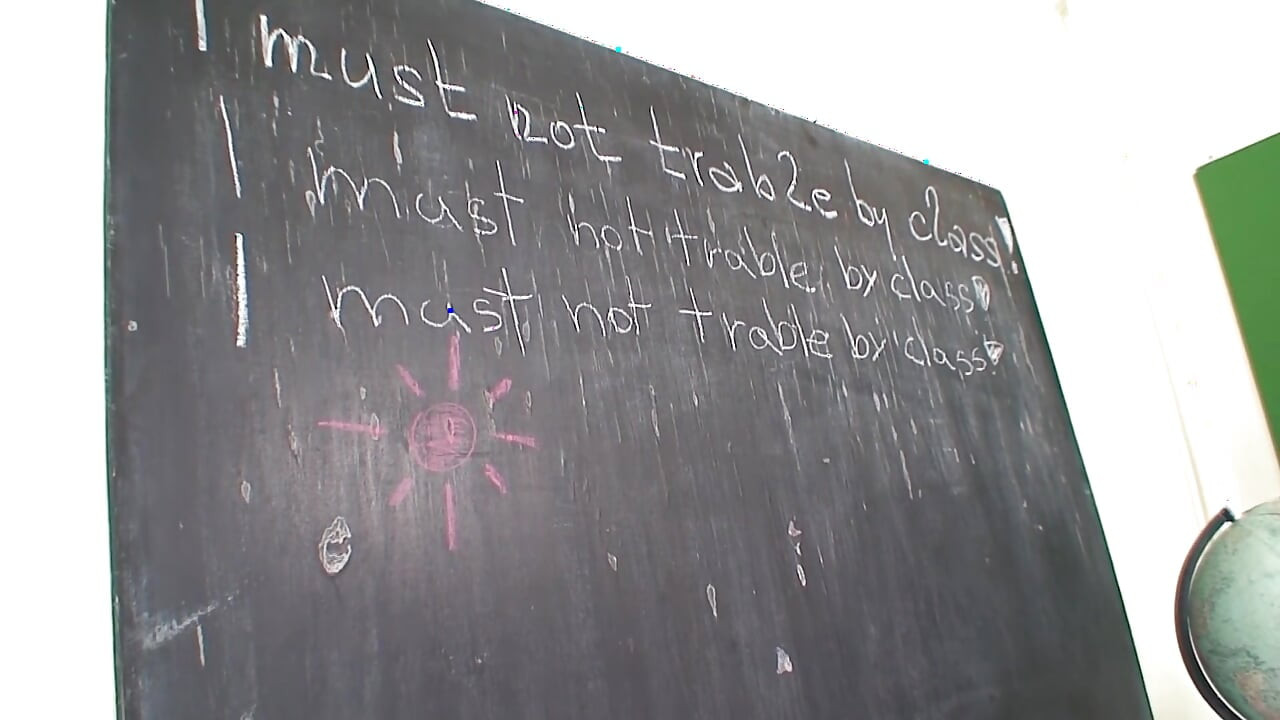 I must not trable by class!
I must not trable by class!
I must not trable by class!